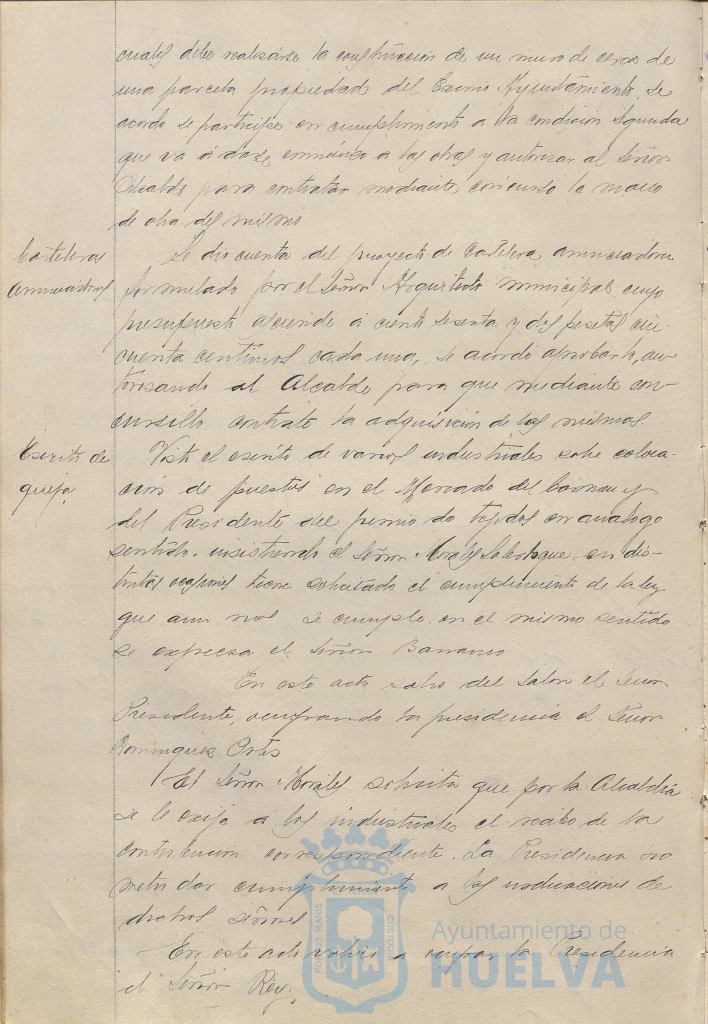 cuales debe realizarse la construcción de un muro de cerca de
una parcela propiedad del Excmo Ayuntamiento, se
acordó se participe en cumplimiento a la condición segunda
que va a darse comienzo a las obras y autorizar al Señor
Alcalde para contratar mediante concurso la mano
de obra del mismo
Carteleras
anunciadoras
Se dio cuenta del proyecto de Cartelera anunciadora
formulado por el Señor Arquitecto municipal cuyo
presupuesto asciende a ciento sesenta y dos pesetas cin-
cuenta centimos cada una, se acordó aprobarlo, au-
torizando al Alcalde para que mediante con-
cursillo contrate la adquisición de las mismas.
Escrito de
queja.
Visto el escrito de varios industriales sobre coloca-
ción de puestos en el Mercado del Carmen y
del Presidente del gremio de tejidos en analogo
sentido. insistiendo el Señor Morales que en dis-
tintas ocasiones tiene solicitado el cumplimiento de la ley
que aun no se cumple en el mismo sentido
se expresa el Señor Barranco
En este acto salio del Salon el Señor
Presidente, ocupando la presidencia el Señor
Dominguez Ortis
El Señor Morales solicita que por la Alcaldia
se le exija a los industriales el recibo de la
contribucion correspondiente. La Presidencia pro
mete dar cumplimiento a las indicaciones de
dichos señores
En este acto volvio a ocupar la Presidencia
el Señor Rey.
PORTUS MARIS
CUSTODIA
Ayuntamiento de
HUELVA